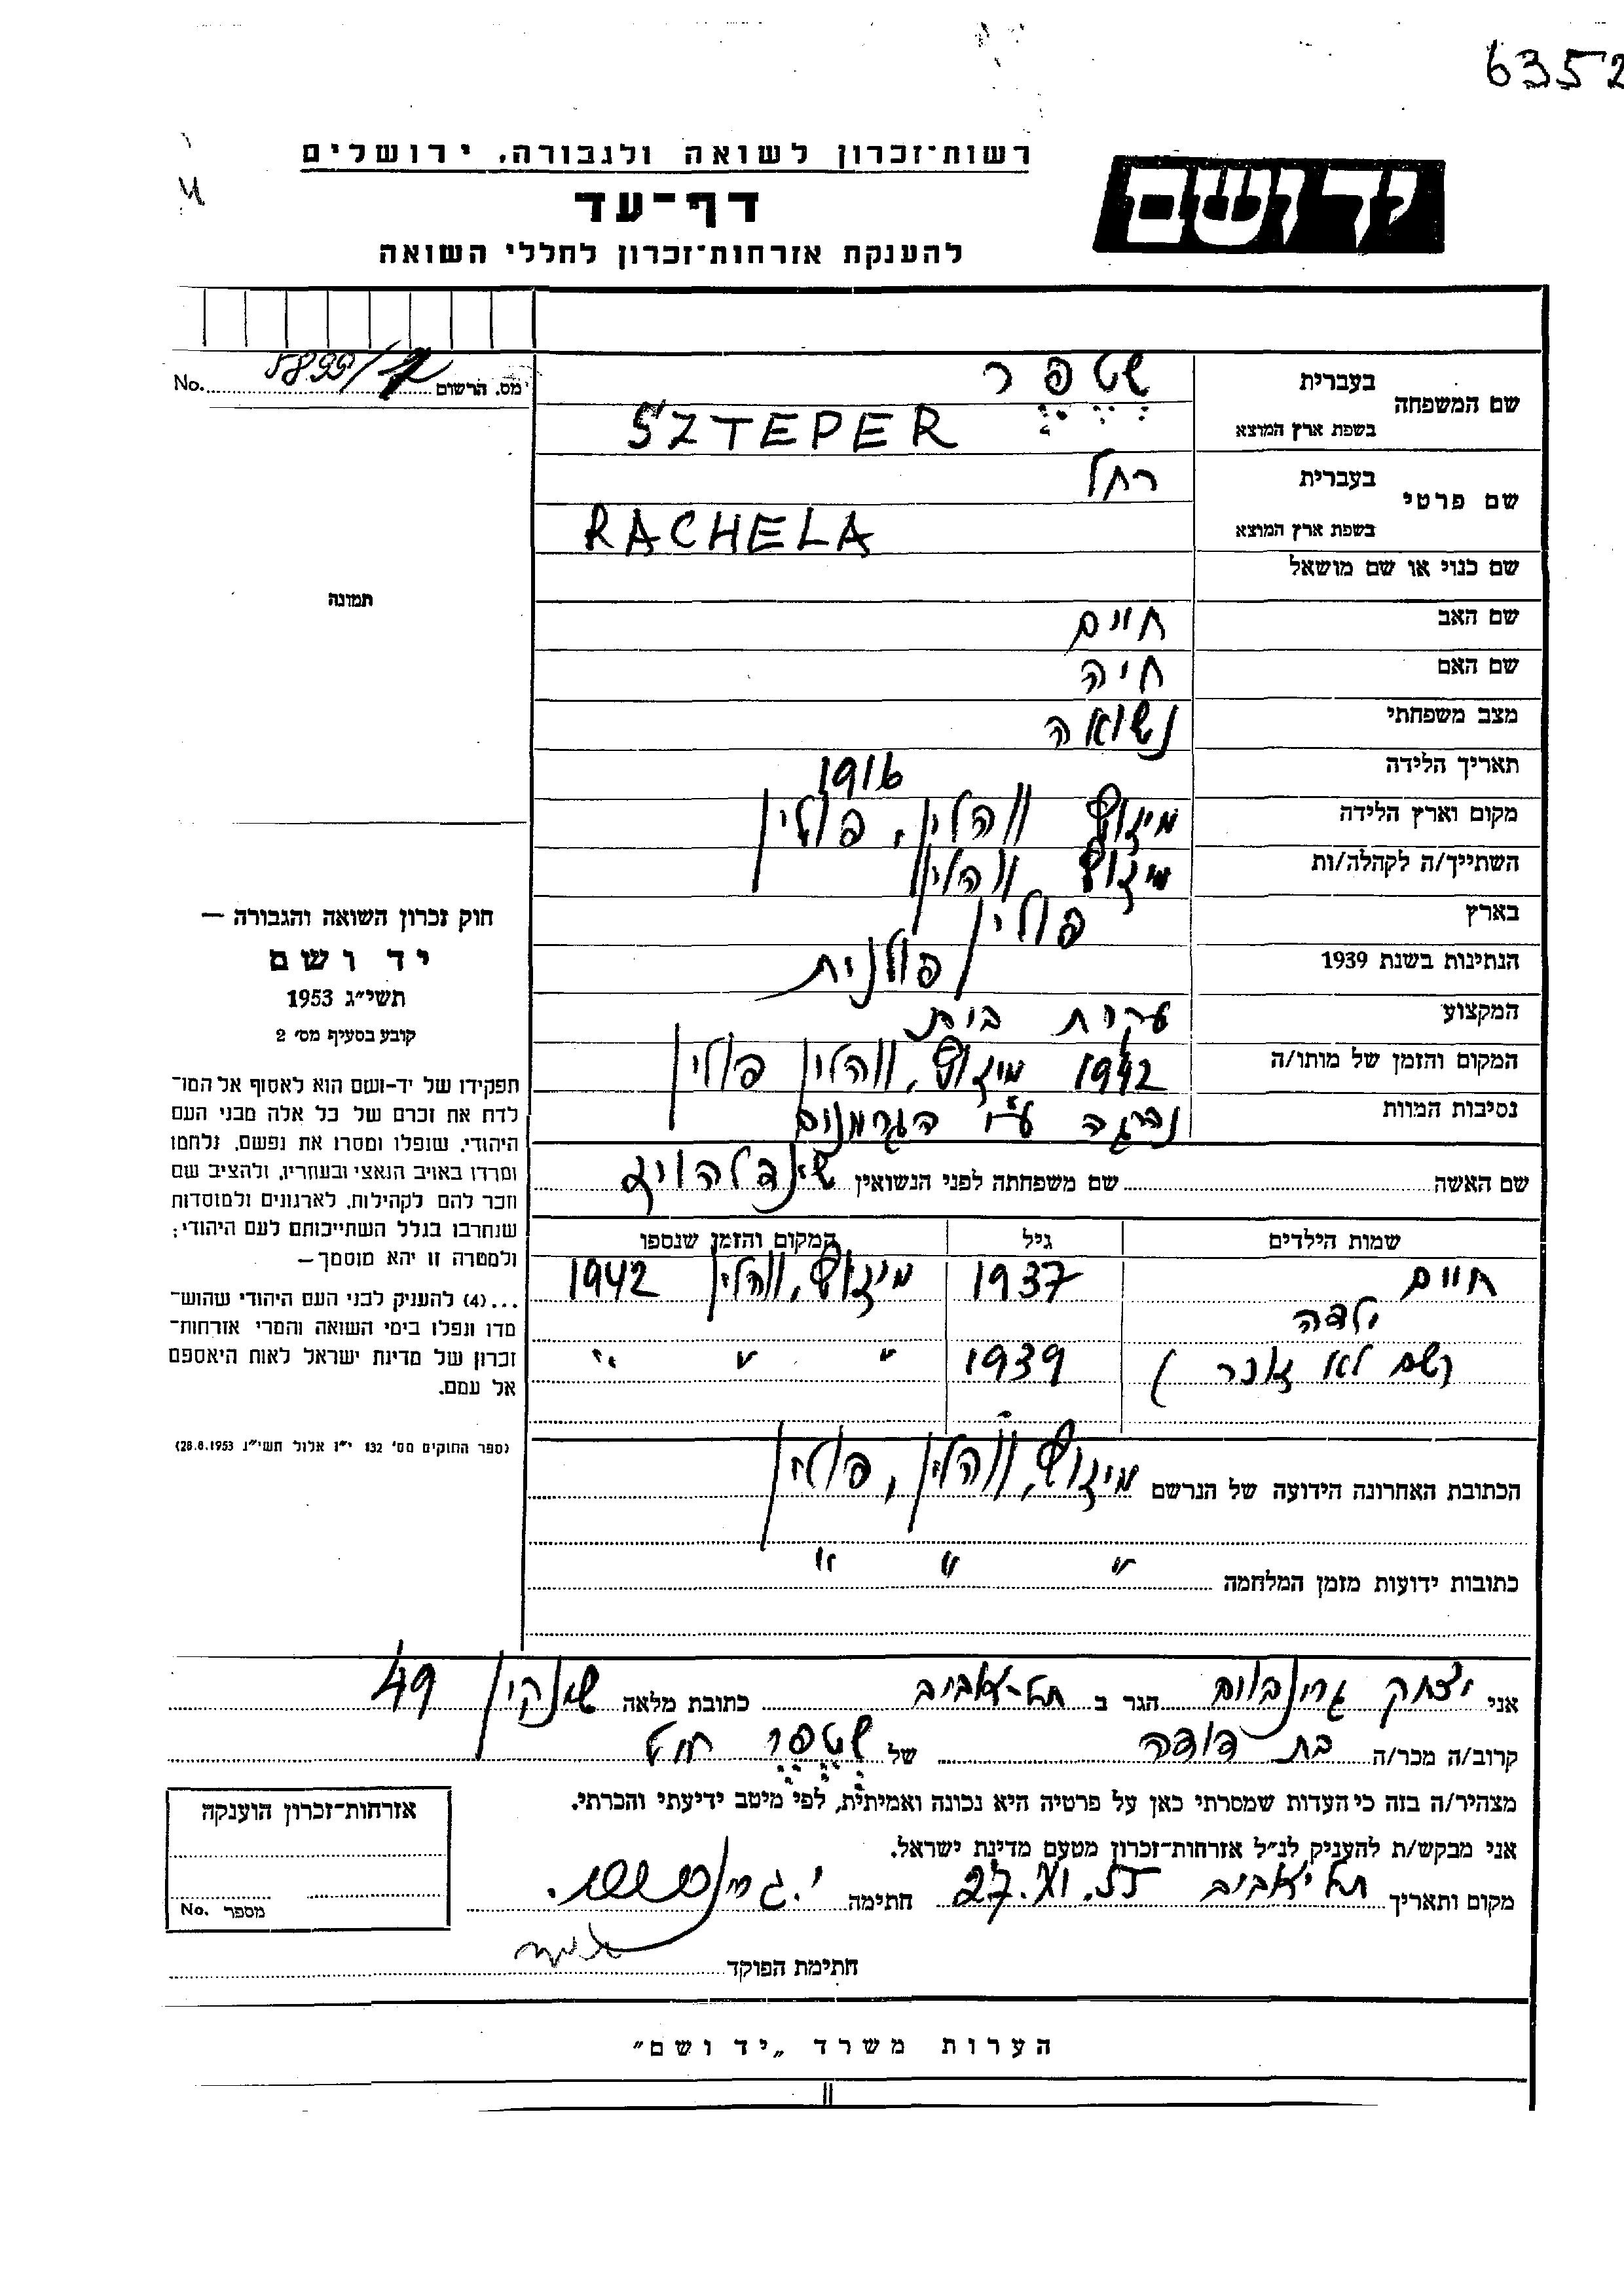 6352
רשות־זכרון לשואה ולגבורה, ירושלים
דף־עד
להענקת אזרחות־זכרון לחללי השואה
יד ושם
No. מס. הרשום 5899/
שם המשפחה
בעברית שטפר
בשפת ארץ המוצא SZTEPER
שם פרטי
בעברית רחל
בשפת ארץ המוצא RACHELA
שם כנוי או שם מושאל
שם האב חיים
שם האם חיה
מצב משפחתי נשואה
תאריך הלידה 1916
מקום וארץ הלידה מיזוץ ווהלין, פולין
השתייך/ה לקהלה/ות מיזוץ ווהלין
בארץ פולין
הנתינות בשנת 1939 פולנית
המקצוע עקרת בית
המקום והזמן של מותו/ה 1942 מיזוץ, ווהלין פולין
נסיבות המוות נהרגה ע"י הגרמנים
שם האשה שם משפחתה לפני הנשואין
שמות הילדים גיל המקום והזמן שנספו
חיים 1937 מיזוץ, ווהלין 1942
ילדה
(שם לא זוכר) 1939 " " "
הכתובת האחרונה הידועה של הנרשם מיזוץ, ווהלין, פולין
כתובות ידועות מזמן המלחמה " " "
תמונה
חוק זכרון השואה והגבורה —
יד ושם
תשי"ג 1953
קובע בסעיף מס' 2
תפקידו של יד-ושם הוא לאסוף אל המו־
לדת את זכרם של כל אלה מבני העם
היהודי, שנפלו ומסרו את נפשם, נלחמו
ומרדו באויב הנאצי ובעוזריו, ולהציב שם
וזכר להם לקהילות, לארגונים ולמוסדות
שנחרבו בגלל השתייכותם לעם היהודי;
ולמטרה זו יהא מוסמך—
...(4) להעניק לבני העם היהודי שהוש־
מדו ונפלו בימי השואה והמרי אזרחות־
זכרון של מדינת ישראל לאות היאספם
אל עמם.
(ספר החוקים מס' 132 י"ז אלול תשי"ג 28.8.1953)
אני יצחק גרינבוים הגר ב תל-אביב כתובת מלאה שינקין 49
קרוב/ה מכר/ה בת דודה של שטפר רחל
מצהיר/ה בזה כי העדות שמסרתי כאן על פרטיה היא נכונה ואמיתית, לפי מיטב ידיעתי והכרתי.
אני מבקש/ת להעניק לנ"ל אזרחות־זכרון מטעם מדינת ישראל.
מקום ותאריך תל אביב 27.VI.55 חתימה
חתימת הפוקד
אזרחות־זכרון הוענקה
No. מספר
הערות משרד „יד ושם"